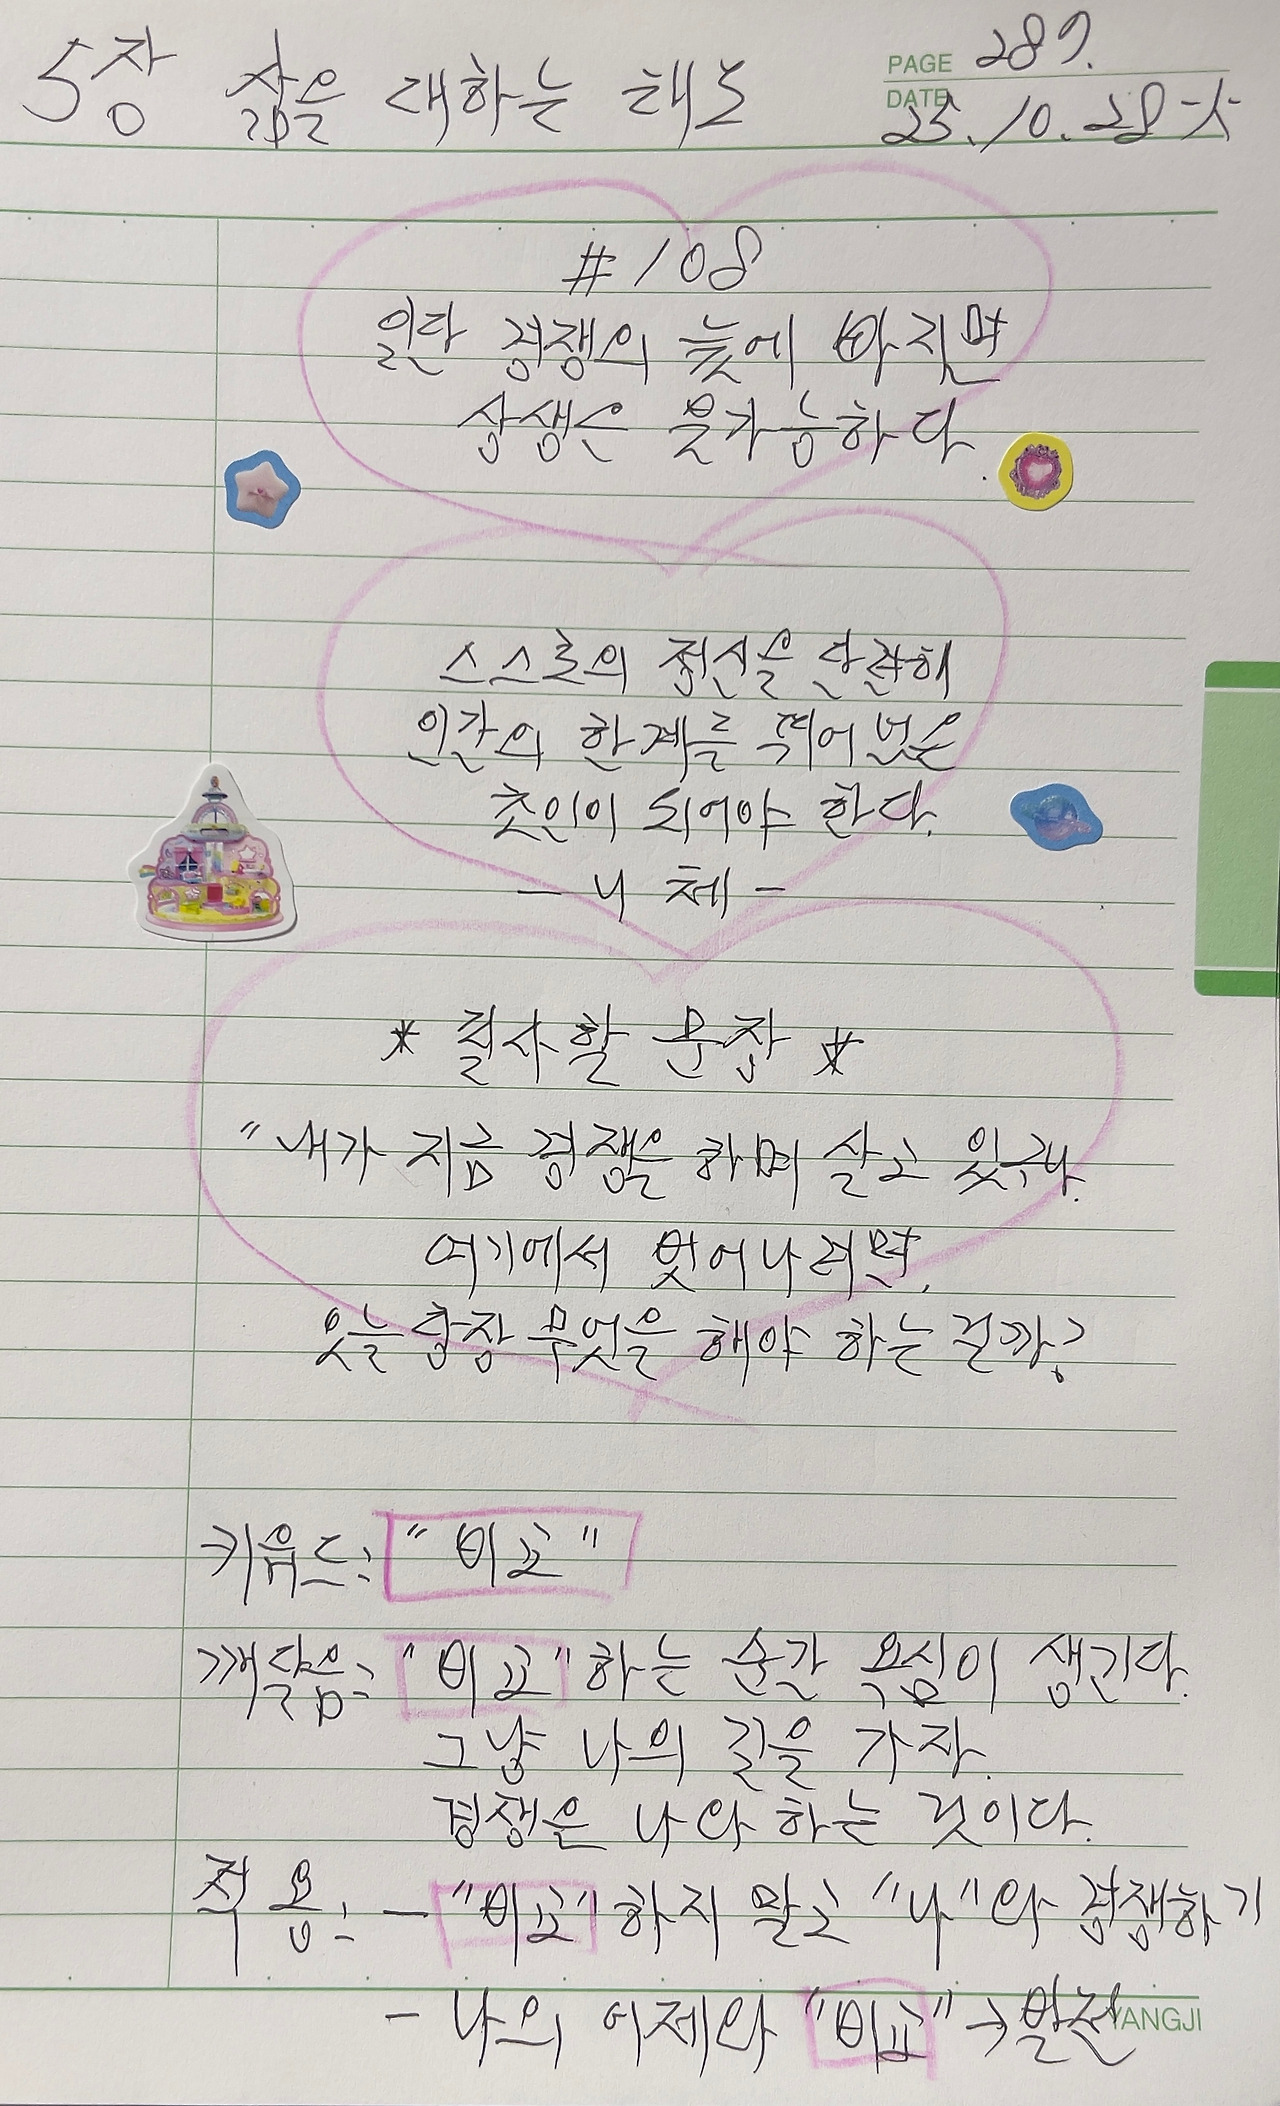 5장 삶을 대하는 태도
PAGE 289.
DATE 25. 10. 28 火
#108
일단 경쟁의 늪에 빠지면
상생은 불가능하다.
스스로의 정신을 단련해
인간의 한계를 뛰어넘은
초인이 되어야 한다.
- 니체 -
* 필사할 문장 *
"내가 지금 경쟁을 하며 살고 있구나.
여기에서 벗어나려면,
오늘 당장 무엇을 해야 하는 걸까?
키워드: "비교"
깨달음: "비교"하는 순간 욕심이 생긴다.
그냥 나의 길을 가자.
경쟁은 나와 하는 것이다.
적용: - "비교"하지 말고 "나"와 경쟁하기
- 나의 어제와 "비교" → 발전
YANGJI